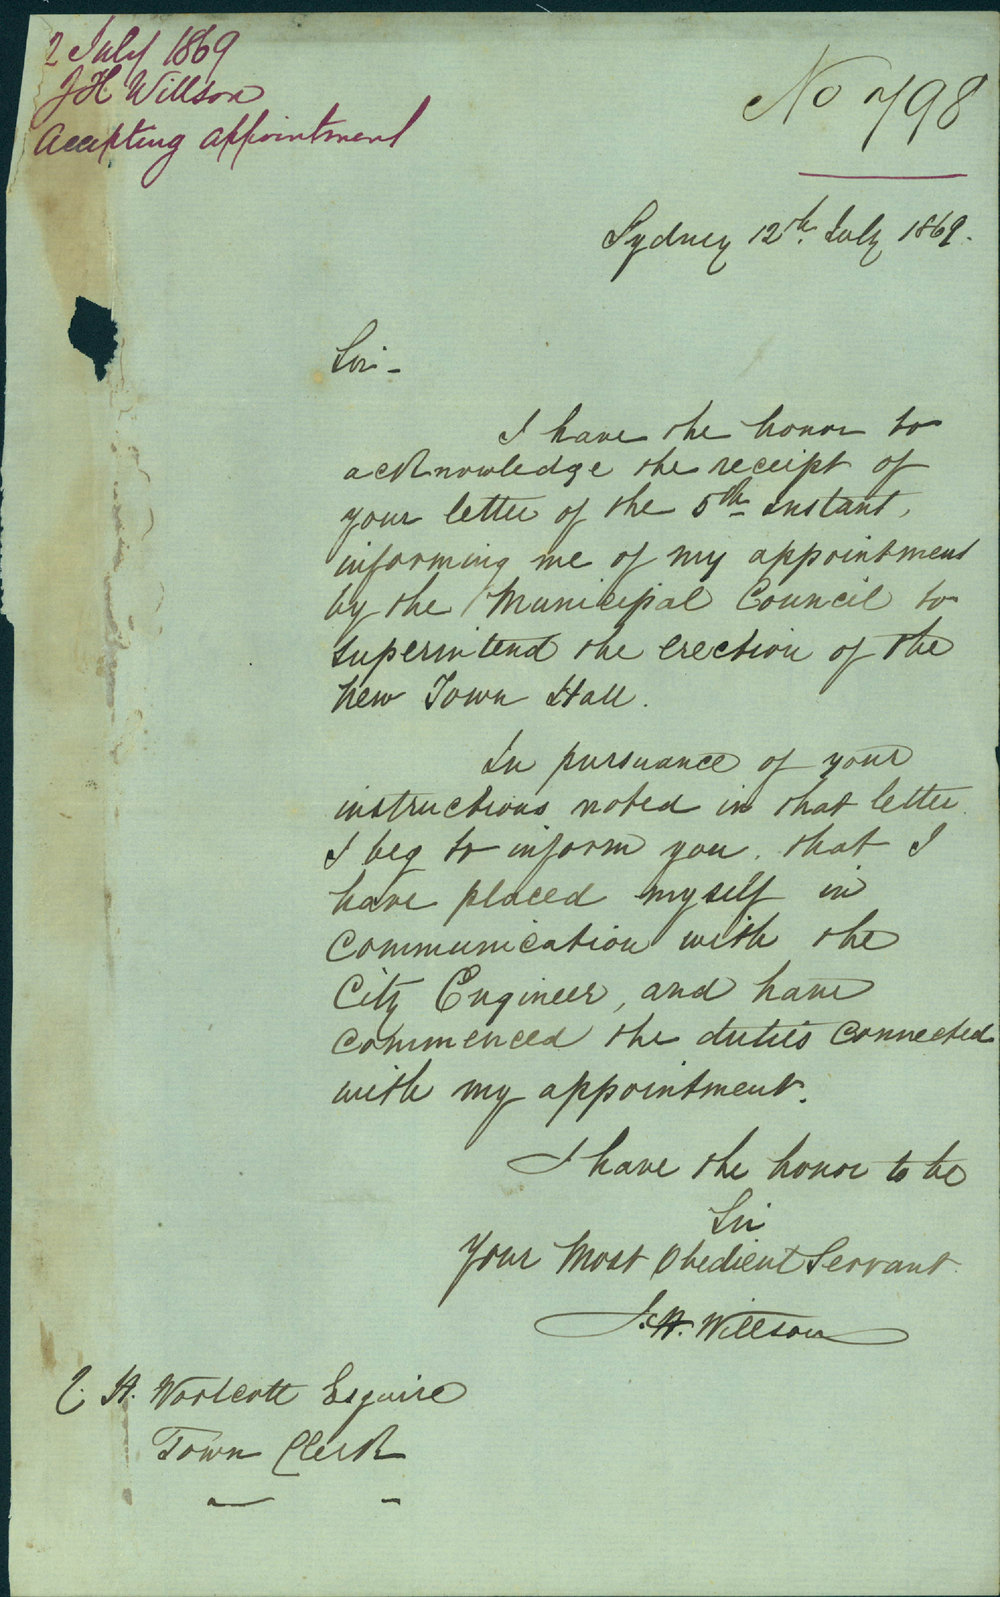 2 July 1869
J H Willson
Accepting appointment
No 798
Sydney 12th. July 1869.
Sir -
I have the honor to
acknowledge the receipt of
your letter of the 5th instant,
informing me of my appointment
by the Municipal Council to
superintend the erection of the
New Town Hall.
In pursuance of your
instructions noted in that letter
I beg to inform you. that I
have placed myself in
communication with the
City Engineer, and have
commenced the duties connected
with my appointment.
I have the honor to be
Sir
Your Most Obedient Servant.
J. H. Willson
C. H. Woolcott Esquire
Town Clerk